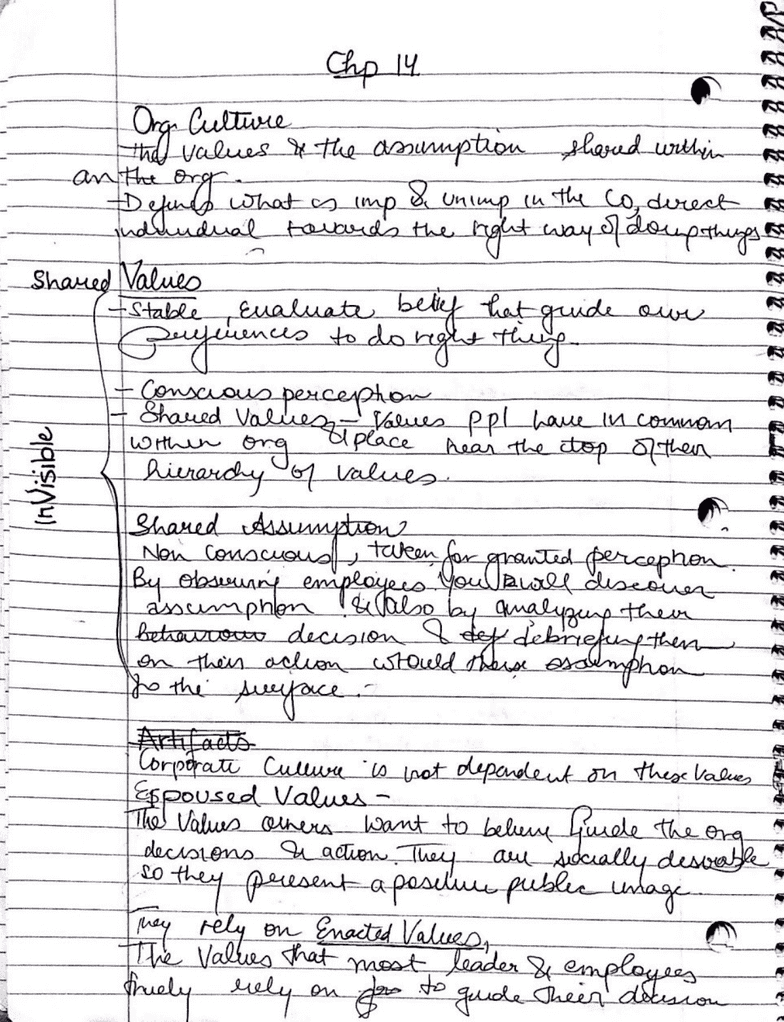 Chp 14
Org. Culture
the values & the assumption shared within
an the org.
- Defines what is imp & unimp in the Co, direct
individual towards the right way of doing things
Shared Values
- Stable, Evaluate belief that guide our
preferences to do right thing.
- Conscious perception
- Shared Values - Values ppl have in common
within org & place near the top of their
hierarchy of values.
InVisible
Shared Assumption
Non Conscious, taken for granted perception.
By observing employees you will discover
assumption & also by analyzing their
behaviour decision & def debriefing them
on their action would these assumption
to the surface.-
Artifacts
Corporate Culture is not dependent on these Values
Espoused Values -
The Values others want to believe Guide the org
decisions & action. They are socially desirable
so they present a positive public image.
They rely on Enacted Values,
The Values that most leader & employees
truely rely on to guide their decision